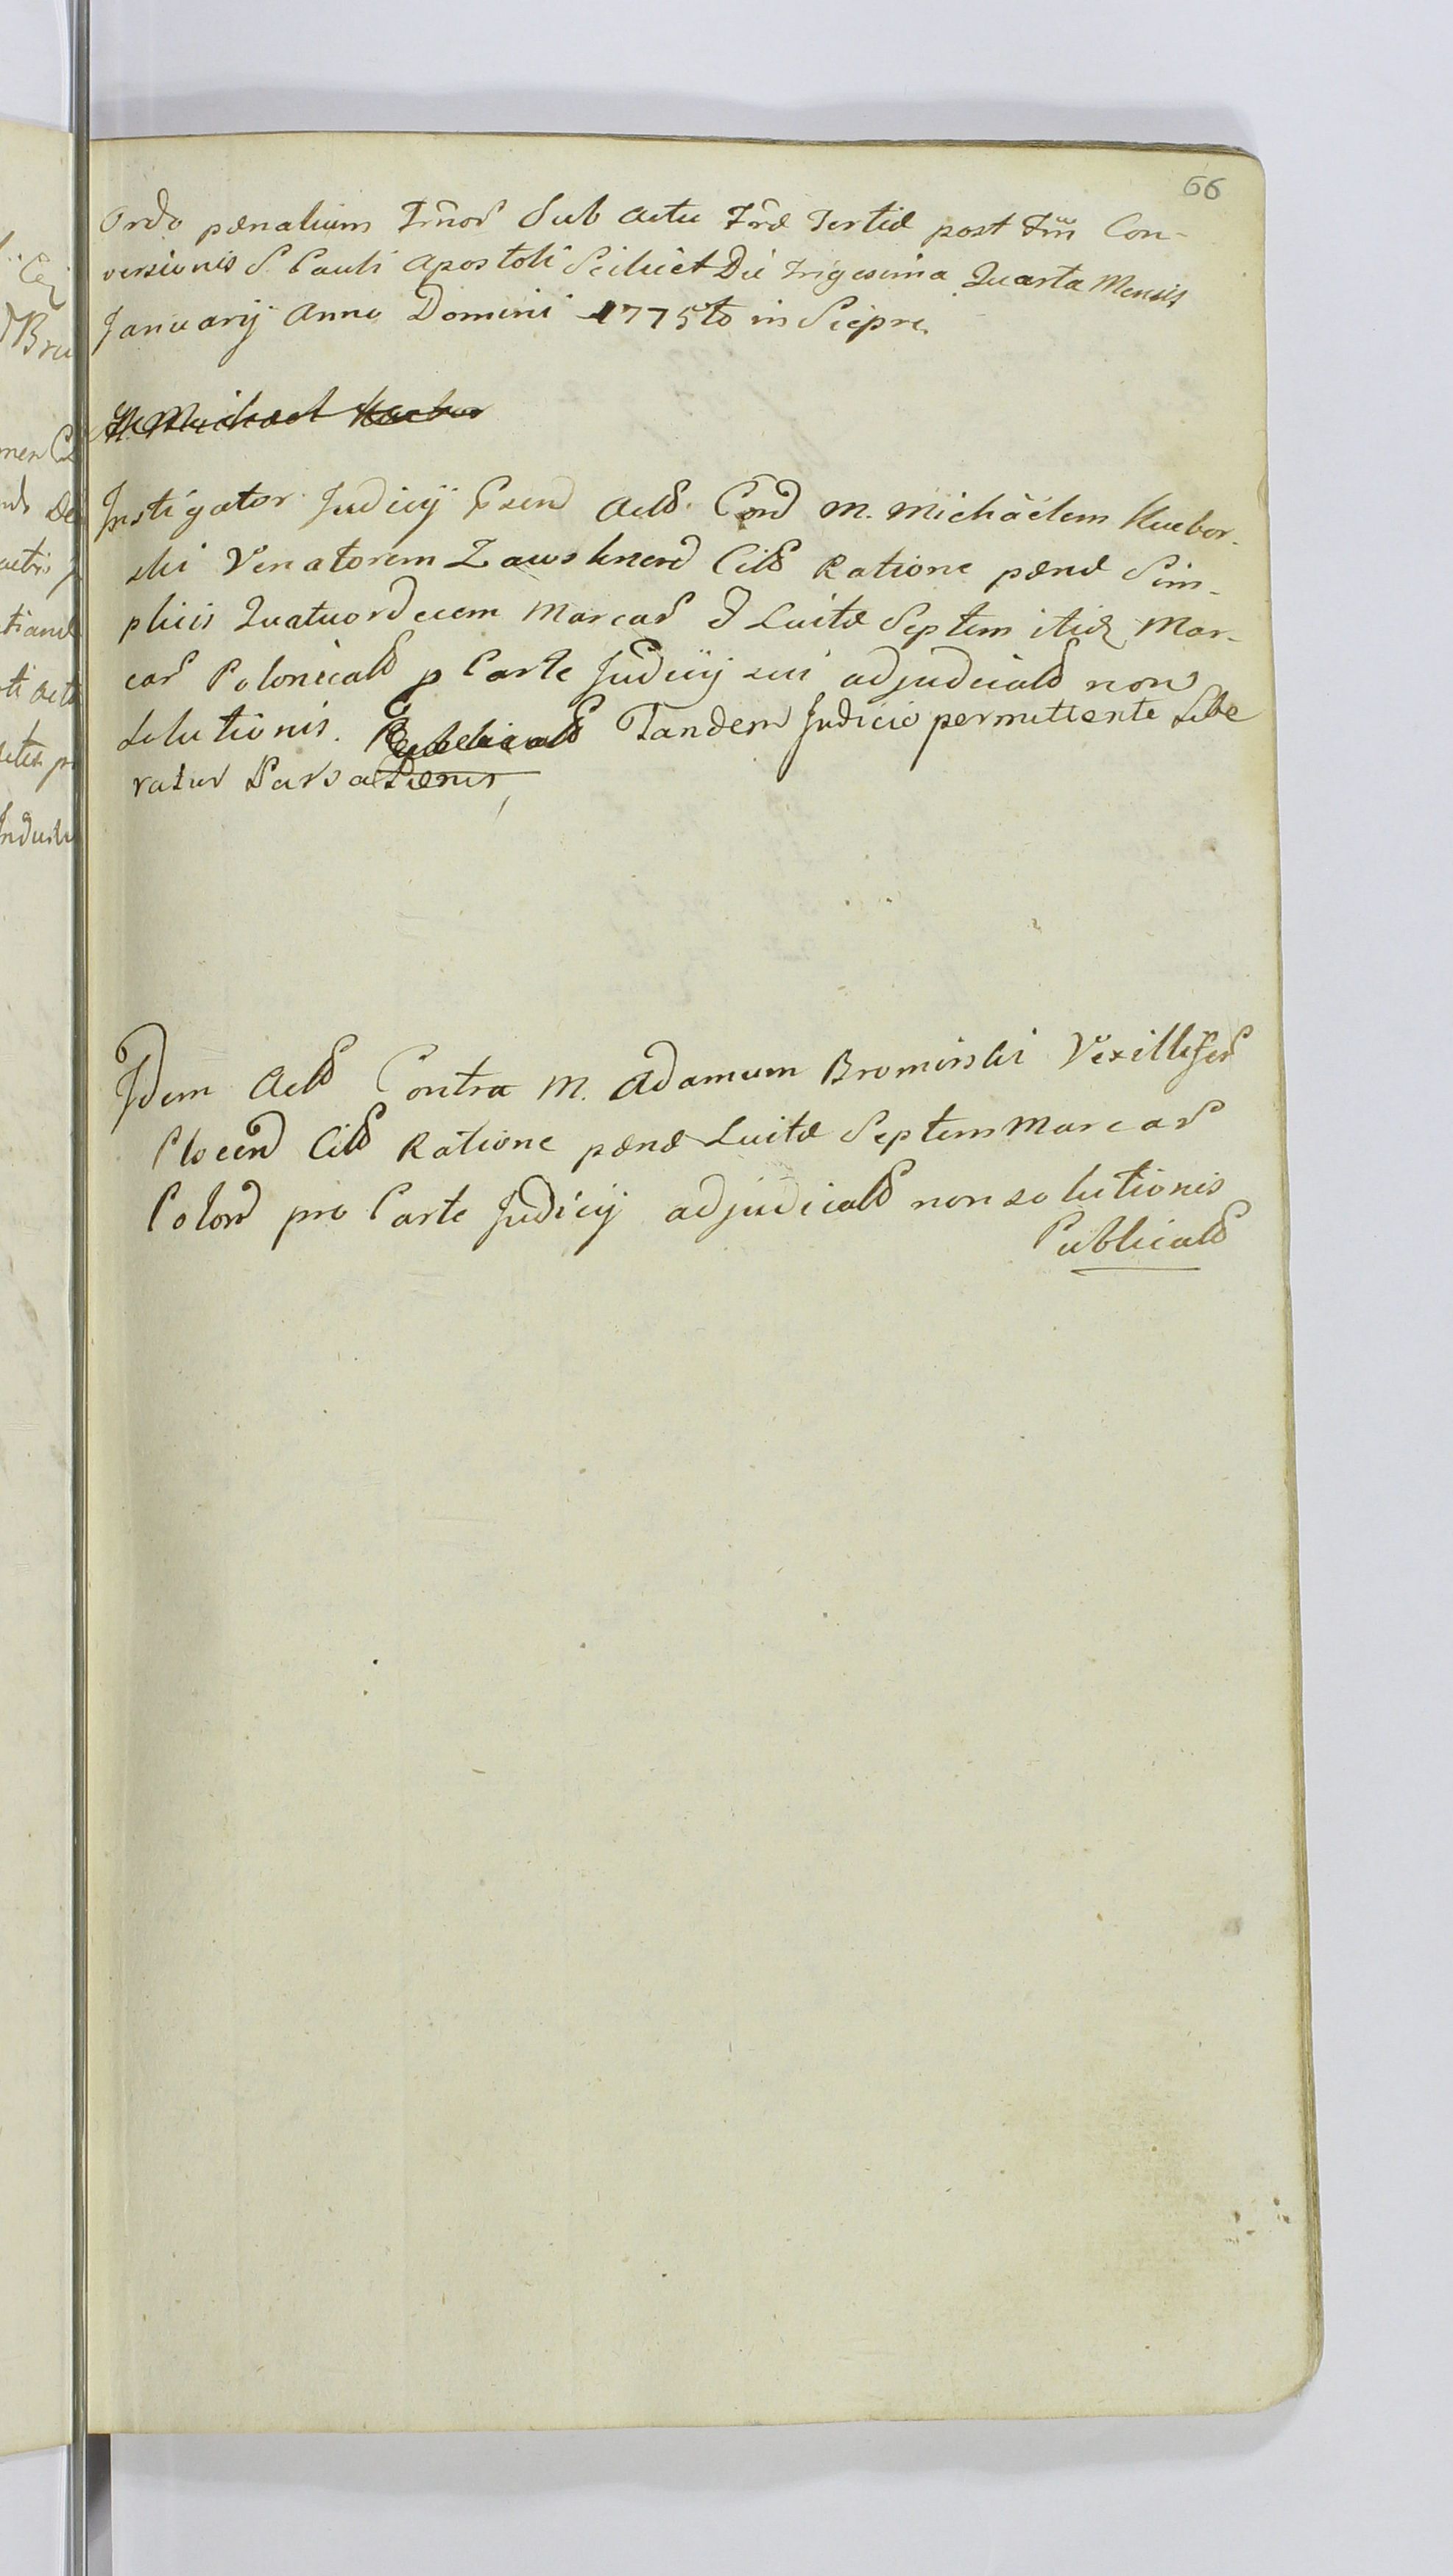 66
Ordo pænalium Trnor Sub Actu Fræ Tertiæ post Ftu Con-
versionis S. Pauli Apostoli Scilicet Die Trigesima Quarta Mensis
Januarij Anno Domini 1775to in Siepre
M. Michael
Instigator Judicij Actd Cond M. Michäelem Kuebor-
ski Venatorem Zawsknend Citd Ratione pænæ Sim-
plicis Quatuordecem Marcar & Luitæ Septem itid Mar-
car Polonicald p Parte Judicij sui adjudicald non
Solutionis. Publicald Tandem Judicio permittente Libe
ratur Parsa Pænis
Idem Actd Contra M. Adamum Brominski Vexillifer
Plocend Citd Ratione pænæ Luitæ Septem Marcar
Polond pro Parte Judicij adjudicald non solutionis
Publicald